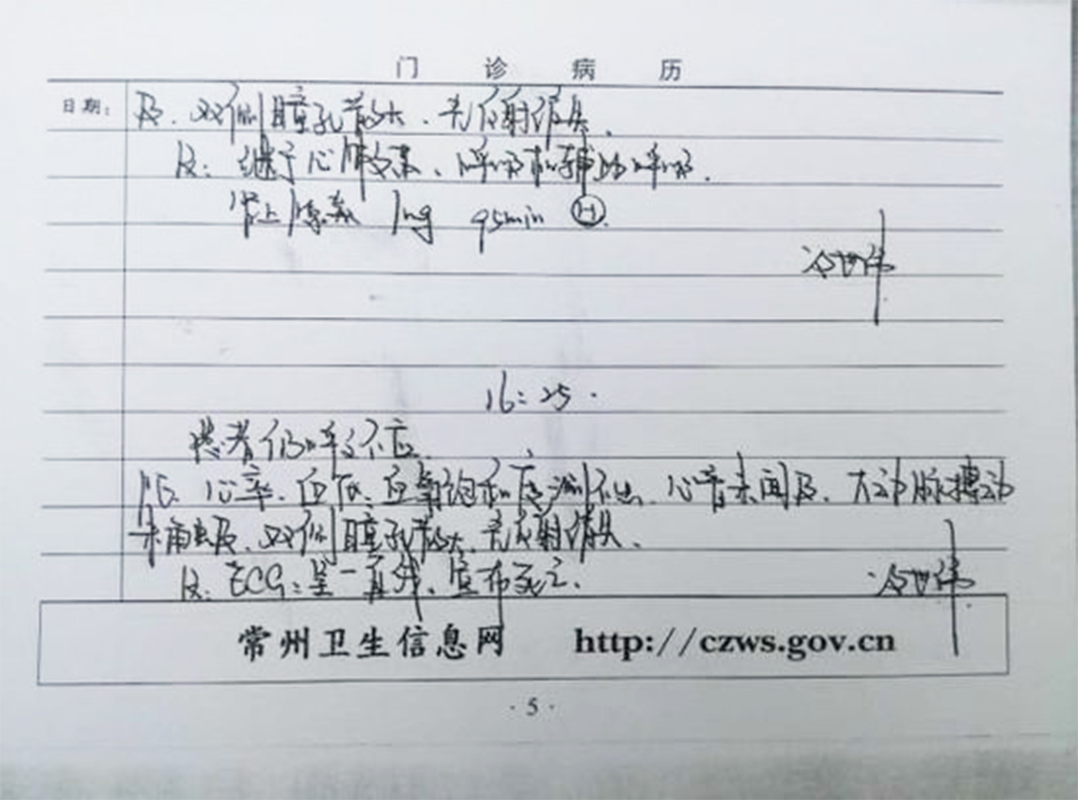 门 诊 病 历
日期:
及、双侧瞳孔散大、光反射消失、
R: 继予心肺复苏、呼吸机辅助呼吸.
肾上腺素 1mg q5min H
16:25.
患者仍呼之不应.
PE: 心率、血压、血氧饱和度测不出、心音未闻及、大动脉搏动
未触及、双侧瞳孔散大、光反射消失、
R: ECG: 呈一直线、宣布死亡.
常州卫生信息网 http://czws.gov.cn
· 5 ·